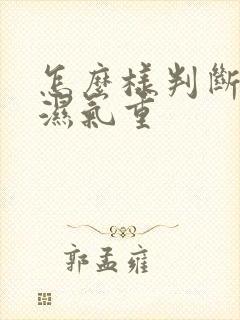 怎麼樣判斷
濕氣重
郭孟雍